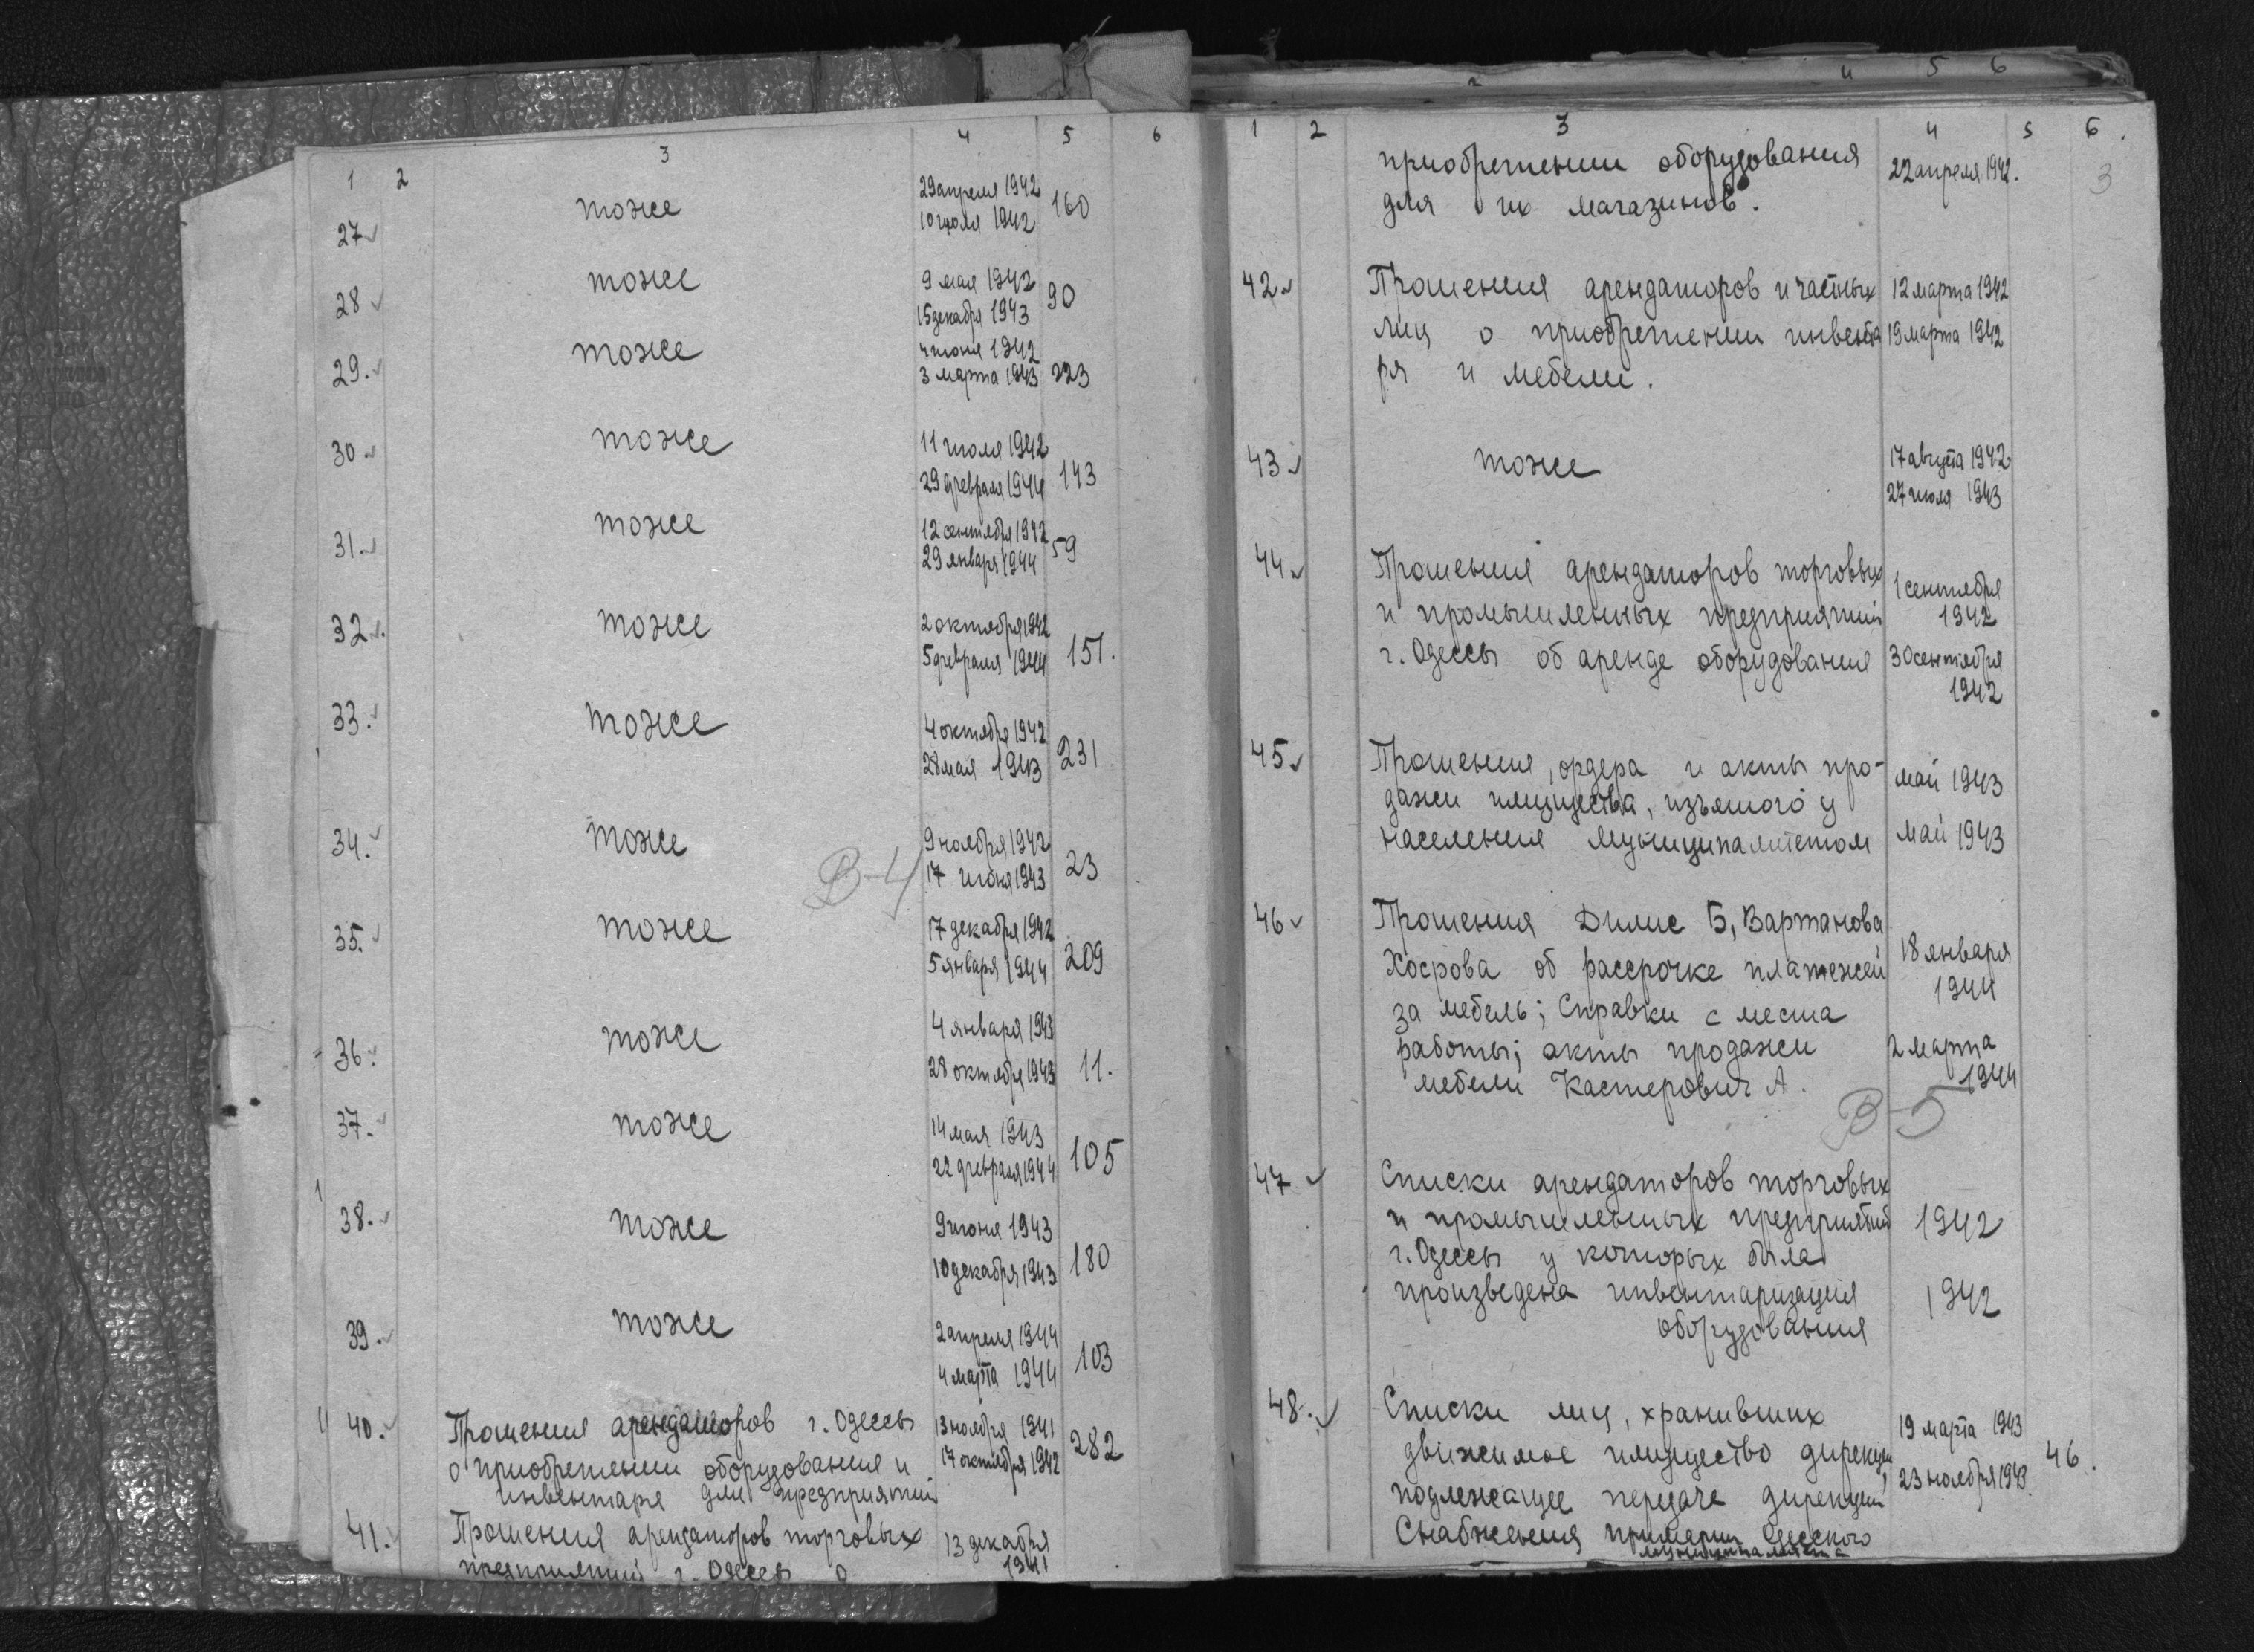 1 2 3 4 5 6
27 тоже 29 апреля 1942 160
10 июля 1942
28 тоже 9 мая 1942 90
15 декабря 1943
29. тоже 4 июня 1942
3 марта 1943 223
30 тоже 11 июля 1942
29 февраля 1944 143
31. тоже 12 сентября 1942 59
29 января 1944
32. тоже 2 октября 1942
5 февраля 1944 151.
33. тоже 4 октября 1942 231
28 мая 1943
34. тоже 9 ноября 1942 23
17 июня 1943
В-4
35. тоже 17 декабря 1942 209
5 января 1944
36. тоже 4 января 1943
28 октября 1943 11.
37. тоже 14 мая 1943 105
22 февраля 1944
38. тоже 9 июня 1943 180
10 декабря 1943
39. тоже 2 апреля 1944 103
4 марта 1944
40. Прошения арендаторов г. Одессы 13 ноября 1941 282
о приобретении оборудования и 17 октября 1942
инвентаря для предприятий
41. Прошения арендаторов торговых 13 декабря
предприятий г. Одессы о 1941
4 5 6
1 2 3 4 5 6.
приобретении оборудования 22 апреля 1942. 3
для их магазинов.
42 Прошения арендаторов и частных 12 марта 1942
лиц о приобретении инвента 19 марта 1942
ря и мебели.
43 тоже 17 августа 1942
27 июля 1943
44 Прошения арендаторов торговых 1 сентября
и промышленных предприятий 1942
г. Одессы об аренде оборудования 30 сентября
1942
45 Прошения, ордера и акты про- май 1943
дажи имущества, изъятого у
населения муниципалитетом май 1943
46 Прошения Дилис Б, Вартанова
Хосрова об рассрочке платежей 18 января
за мебель; Справки с места 1944
работы; акты продажи 2 марта
мебели Кастерович А. 1944
В-5
47 Списки арендаторов торговых
и промышленных предприятий 1942
г. Одессы у которых была
произведена инвентаризация 1942
оборудования
48. Списки лиц, хранивших 19 марта 1943
движимое имущество дирекции 46.
подлежащее передаче дирекции 23 ноября 1943.
Снабжения примарии Одесского
муниципалитета